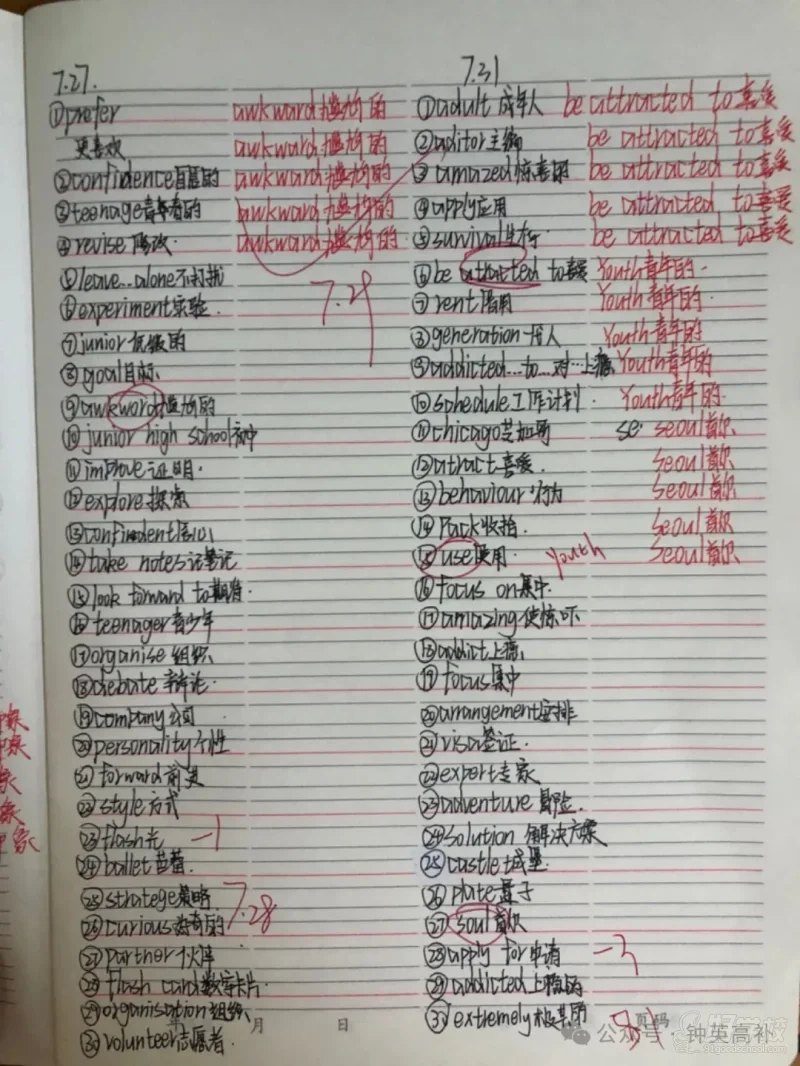 7.27.
①prefer awkward尴尬的
更喜欢 awkward尴尬的
②confidence自信的 awkward尴尬的
③teenage青年者的 awkward尴尬的
④revise修改. awkward尴尬的
⑤leave...alone不打扰
7.29
⑥experiment实验.
⑦junior低级的
⑧goal目标
⑨awkword尴尬的
⑩junior high school初中
⑪improve证明.
⑫explore探索
⑬confindent
⑭take notes记笔记
⑮look forward to期待.
⑯teenager青少年
⑰organise组织
⑱debate辩论.
⑲company公司
⑳personality个性
㉑forward前
㉒style方式
㉓flash光 -1
㉔ballet芭蕾.
㉕stratege策略 7.28
㉖curious好奇的
㉗partner伙伴
㉘flash card数字卡片.
㉙organisation组织.
㉚volunteer志愿者.
7.31
①adult成年人 be attracted to喜爱
②aditor主编 be attracted to喜爱
③amazed惊喜的 be attracted to喜爱
④apply应用 be attracted to喜爱
⑤survival生存 be attracted to喜爱
⑥be attracted to喜爱 Youth青年的.
⑦rent Youth青年的.
⑧generation Youth青年的
⑨addicted...to...对...上瘾 Youth青年的
⑩schedule工作计划. Youth青年的.
⑪chicago芝加哥 se. seoul首尔
⑫atract喜爱. Seoul首尔
⑬behaviour行为 Seoul首尔
⑭Pack收拾. Seoul首尔
⑮use使用. youth Seoul首尔
⑯focus on集中.
⑰amazing使惊吓
⑱addict上瘾
⑲focus集中
⑳arrangement安排
㉑visa签证.
㉒expert专家
㉓adventure冒险.
㉔solution解决方案
㉕castle城堡.
㉖plate盘子
㉗soul首尔
㉘apply for申请 -3
㉙addicted上瘾的
extremely极其的
月 日 页码
公众号·钟英高补
91学校
www.91goodschool.com